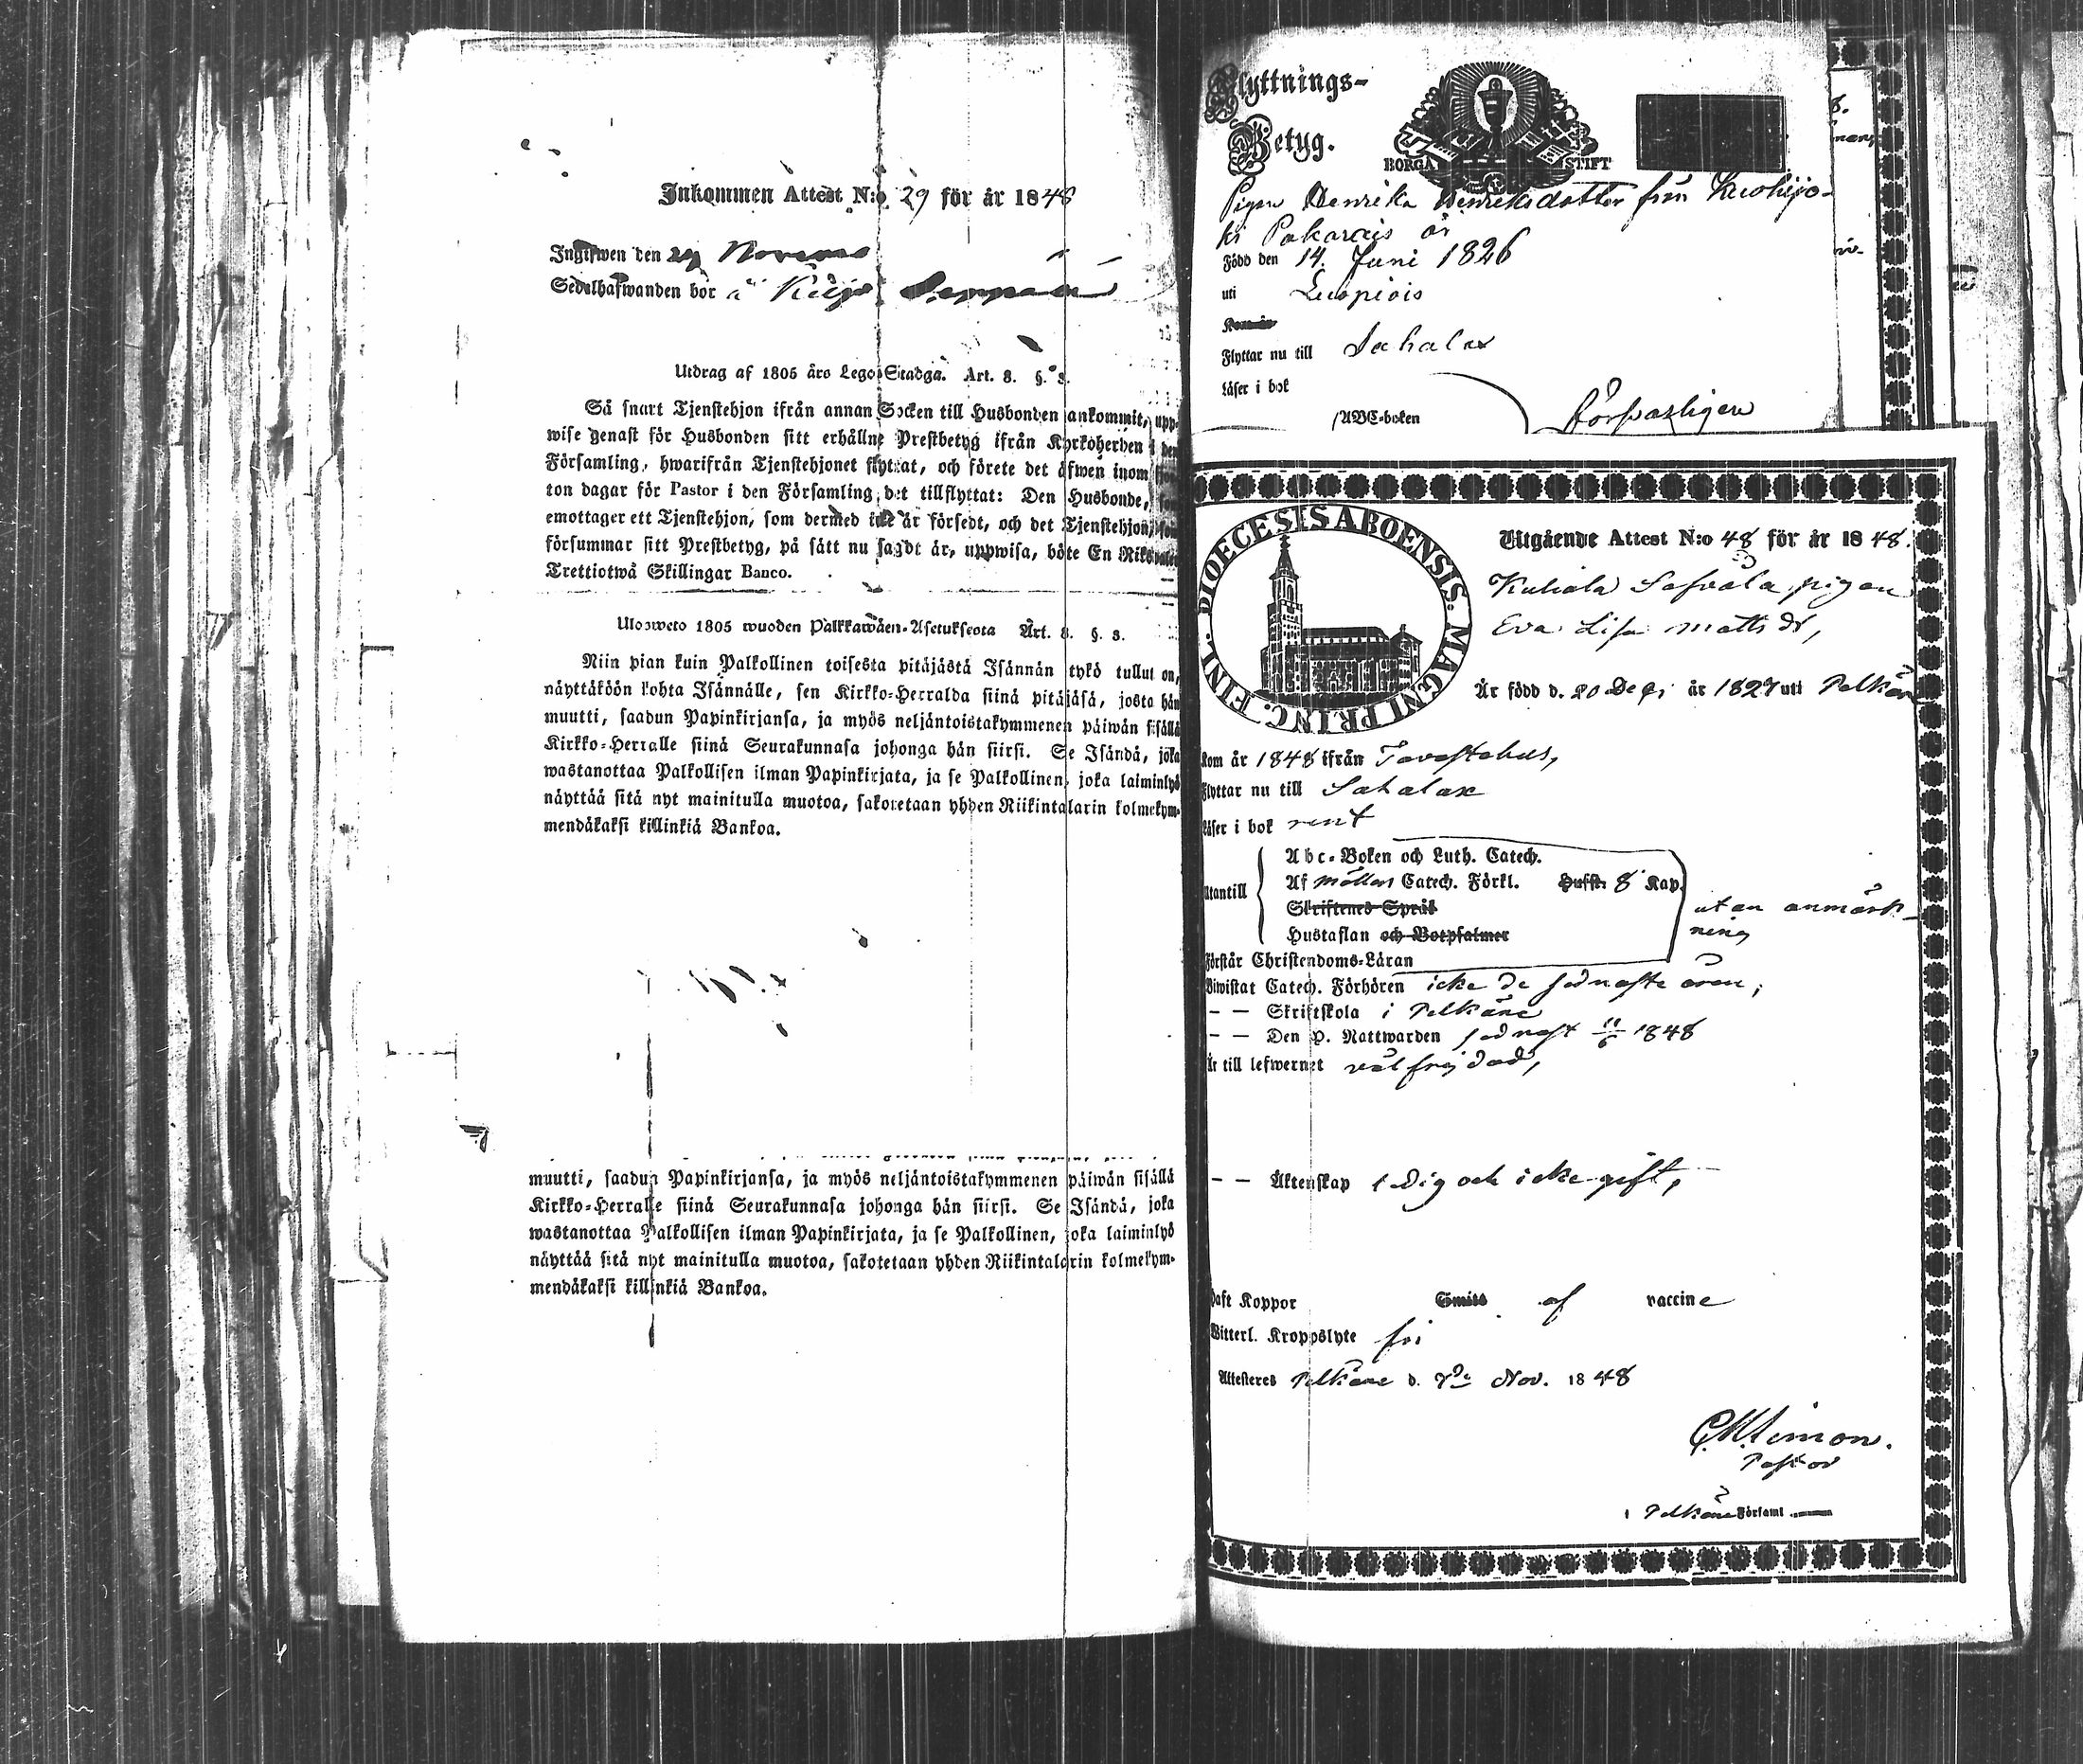 Inkommen Attest N:o 29 för år 1848
Ingifwen den 29 Novem
Sedelhafwanden bor å
Utdrag af 1805 års Lego-Stadga. Art. 8. §. 3.
Så snart Tjenstehjon ifrån annan Socken till Husbonden ankommit, upp-
wise genast för Husbonden sitt erhållne Prestbetyg ifrån Kyrkoherden i den
Församling, hwarifrån Tjenstehjonet flyttat, och förete det äfwen inom
ton dagar för Pastor i den Församling det tillflyttat: Den Husbonde, som
emottager ett Tjenstehjon, som dermed icke är försedt, och det Tjenstehjon, som
försummar sitt Prestbetyg, på sätt nu sagdt är, uppwisa, böte En Riksdaler
Trettiotwå Skillingar Banco.
Ulosweto 1805 wuoden Palkkawäen-Asetuksesta Art. 8. §. 3.
Niin pian kuin Palkollinen toisesta pitäjästä Isännän tykö tullut on,
näyttäköön kohta Isännälle, sen Kirkko-Herralda siinä pitäjäsä, josta hän
muutti, saadun Papinkirjansa, ja myös neljäntoistakymmenen päiwän sisällä
Kirkko-Herralle siinä Seurakunnasa johonga hän siirsi. Se Isändä, joka
wastanottaa Palkollisen ilman Papinkirjata, ja se Palkollinen, joka laiminlyö
näyttää sitä nyt mainitulla muotoa, sakotetaan yhden Riikintalarin kolmekym-
mendäkaksi killinkiä Bankoa.
muutti, saadun Papinkirjansa, ja myös neljäntoistakymmenen päiwän sisällä
Kirkko-Herralle siinä Seurakunnasa johonga hän siirsi. Se Isändä, joka
wastanottaa Palkollisen ilman Papinkirjata, ja se Palkollinen, joka laiminlyö
näyttää sitä nyt mainitulla muotoa, sakotetaan yhden Riikintalarin kolmekym-
mendäkaksi killinkiä Bankoa.
Flyttnings-
Betyg.
BORGÅ STIFT
Pigan Henrika Henriksdotter från Kuohijo-
ki Pakarais är
Född den 14. Juni 1826
uti Luopiois
Flyttar nu till Sahalax
Läser i bok
ABC-boken försvarligen
DIOECESIS ABOENSIS. MAGNI PRINC. FINL.
Utgående Attest N:o 48 för år 1848.
pigan
Eva Lisa Matts dr,
Är född d. 20 Dec. år 1827 uti Pelkäne
Kom år 1848 ifrån Tavastehus,
Flyttar nu till Sahalax
Läser i bok rent
Utantill
Abc-Boken och Luth. Catech.
Af Möllers Catech. Förkl. Hufst. 8 Kap.
Skriftenes Språk
Hustaflan och Botpsalmer
utan anmärk-
ning
Förstår Christendoms-Läran
Biwistat Catech. Förhören icke de sednaste åren,
— — Skriftskola i Pelkäne
— — Den H. Nattwarden sednast 11/6 1848
Är till lefwernet välfrejdad,
— — Äktenskap ledig och icke gift,
Haft Koppor Smitt. af vaccine
Witterl. Kroppslyte fri
Attesteres Pelkäne d. 7de Nov. 1848
Pastor
i Pelkäne Församl.